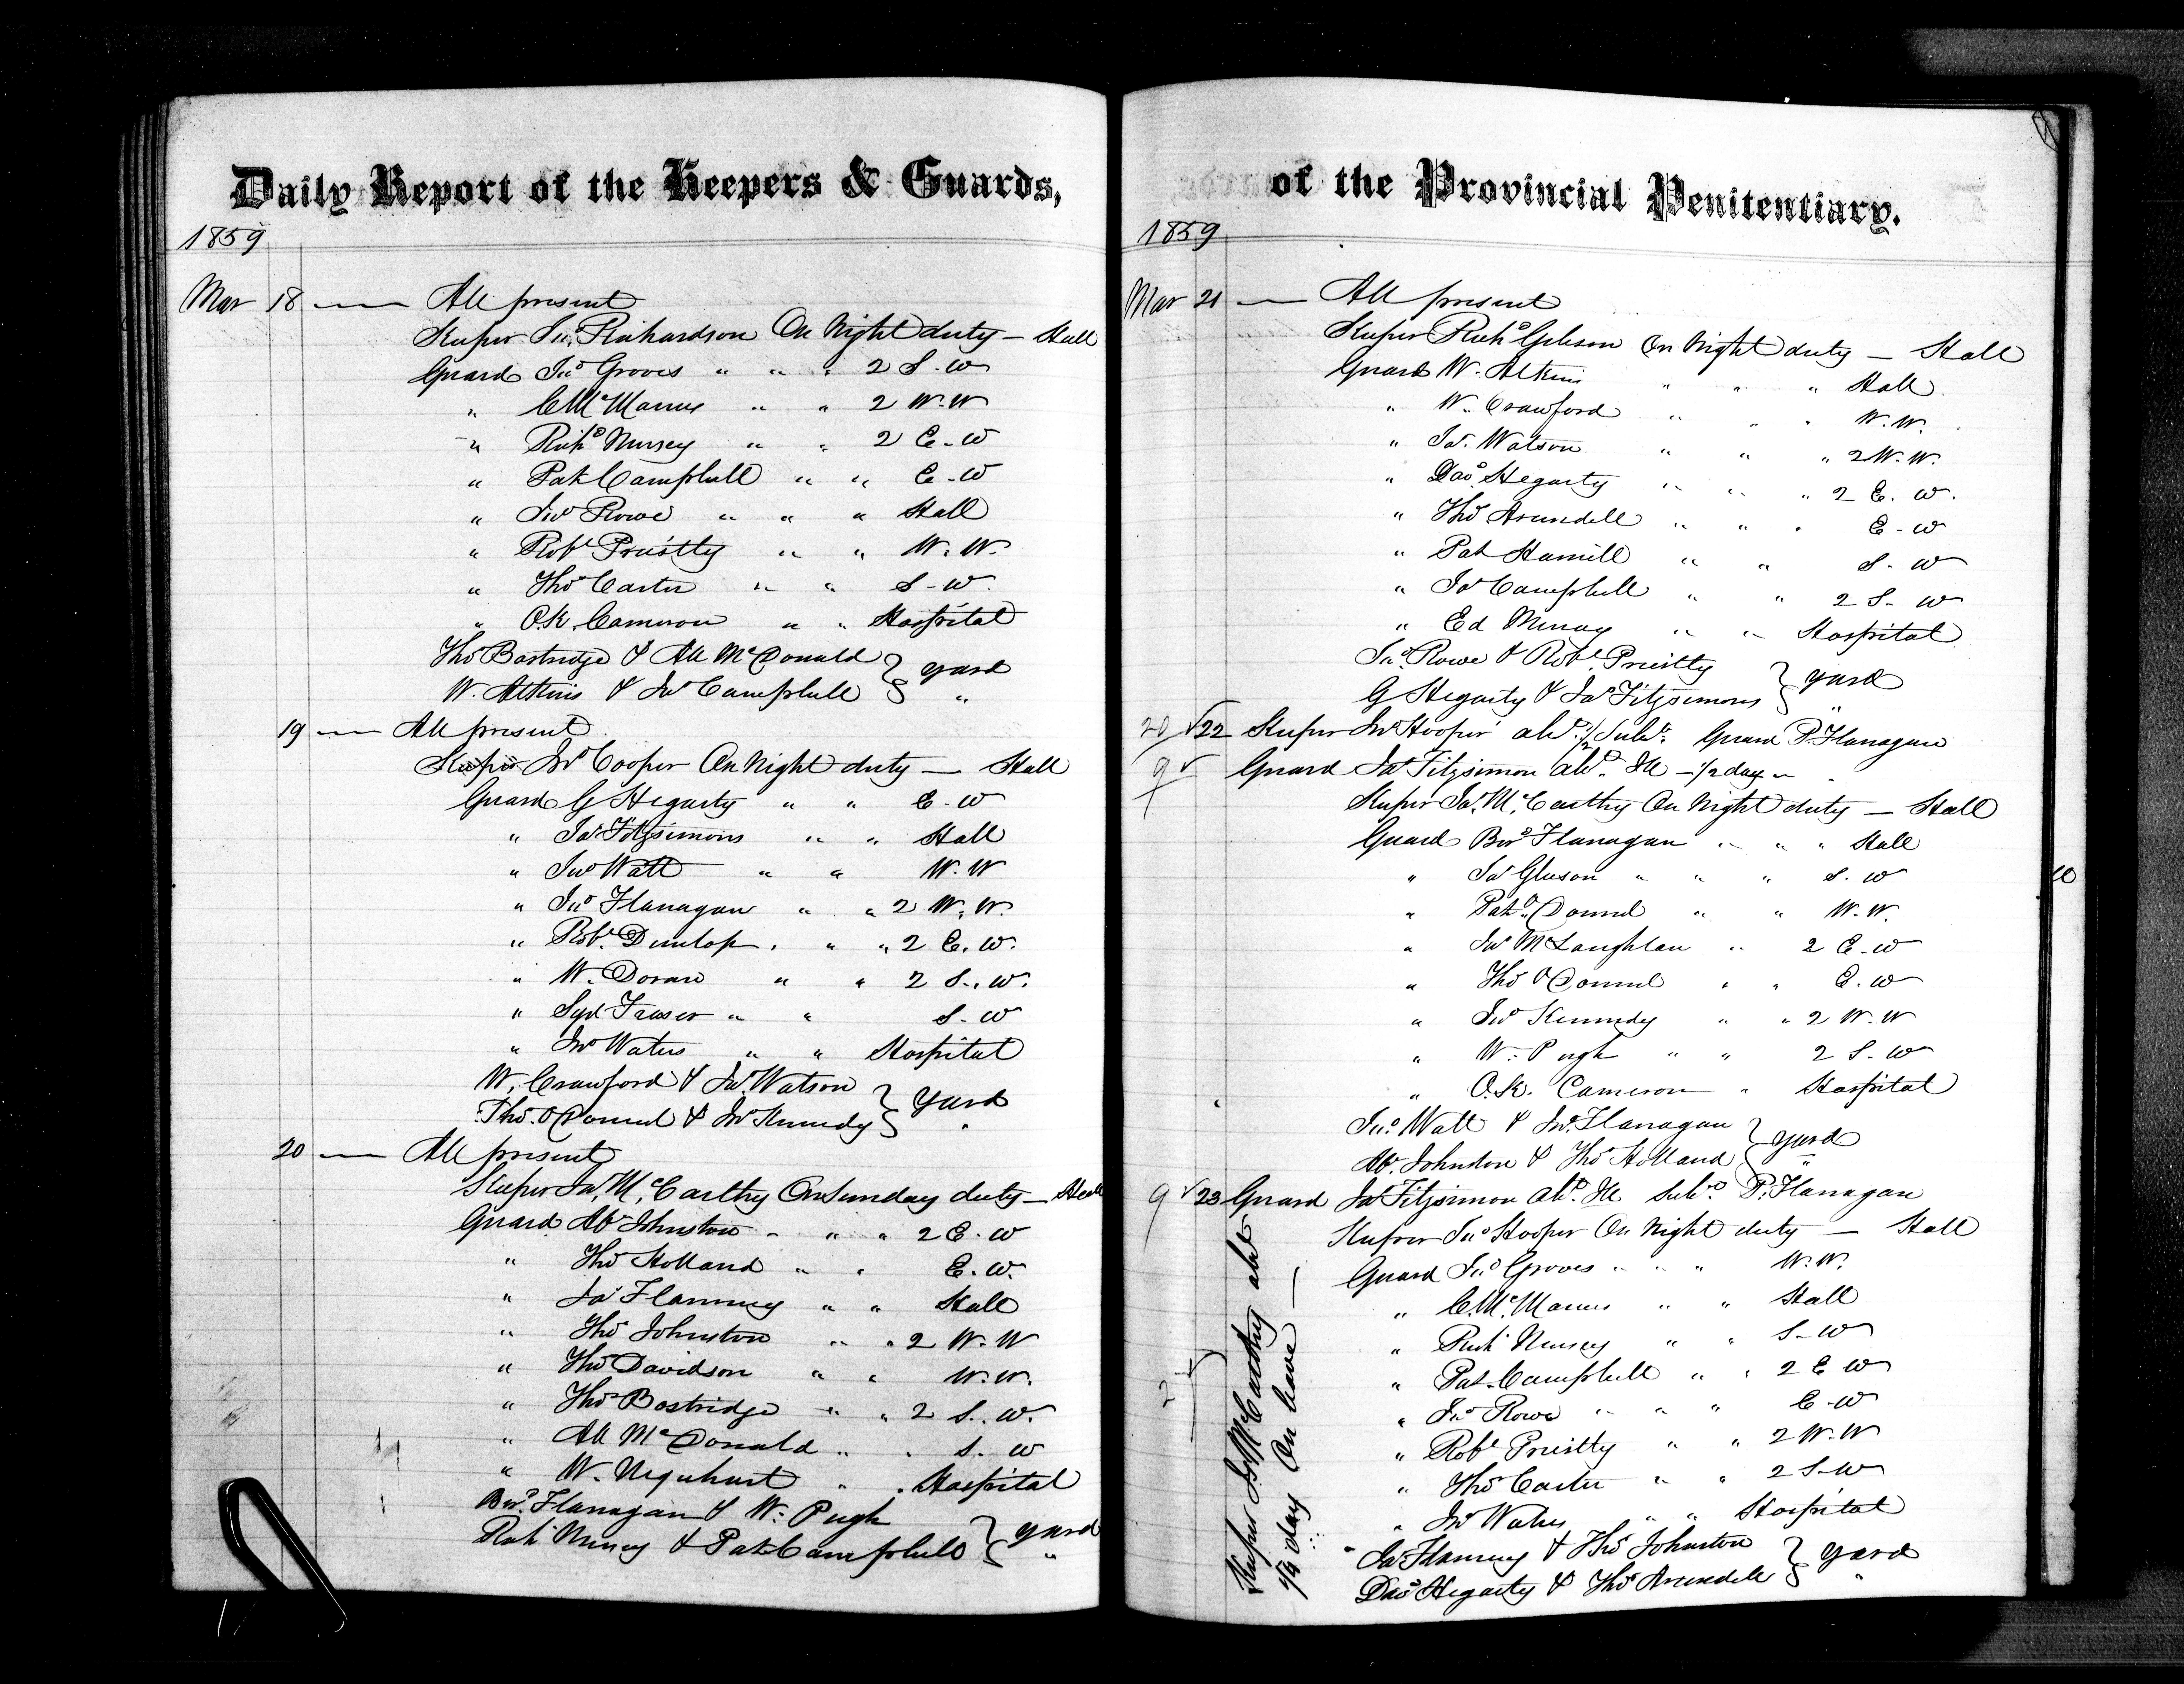 Daily Report of the Keepers & Guards,
1859
Mar 18 — All present
Keeper Jno. Richardson On Night duty — Hall
Guard Jno Groves " " " 2 S. W
" C McManus " " 2 W. W
" Richd Nursey " " 2 E. W
" Pat Campbell " " E. W
" Jno Rowe " " " Hall
" Robt Priestly " " W. W.
" Thos Carter " " S. W.
" O.K. Cameron " " Hospital
Thos Bostridge & All McDonald } yard
W. Atkins & Jas Campbell } "
19 — All present
Keeper Jno Cooper On Night duty — Hall
Guard G Hegarty " " E. W
" Jas Fitzsimons " " Hall
" Jno Watt " " W. W
" Jno Flanagan " " 2 W. W.
" Robt. Dunlop " " " 2 E. W.
" W. Doran " " 2 S. W.
" Fraser " " S. W
" Jno Waters " " Hospital
W. Crawford & Jas. Watson } yard
Thos. O Connel & Jno Kennedy } "
20 — All present
Keeper Jas. McCarthy On Sunday duty — Hall
Guard Ab Johnston " " " 2 E. W
" Thos Holland " " E. W.
" Jas Flaming " " Hall
" Thos Johnston " " 2 W. W
" Thos Davidson " " W. W.
" Thos Bostridge " " 2 S. W.
" All McDonald " " S. W
" W. Urquhart " " Hospital
Bwd. Flanagan & W. Pugh } yard
Richd Nursey & Pat Campbell } "
of the Provincial Penitentiary.
1859
Mar 21 — All present
Keeper Richd Gibson On Night duty — Hall
Guard W. Atkins " " " Hall
" W. Crawford " " " W. W.
" Jas. Watson " " " 2 W. W.
" Davd. Hegarty " " " 2 E. W.
" Thos Arundell " " " E. W
" Pat Hamill " " S. W
" Jas Campbell " " 2 S. W
" Ed Mercay " " Hospital
Jno. Rowe & Robt. Priestly } yard
G Hegarty & Jas Fitzsimons } "
20 √ 22 Keeper Jno Hooper abt. 1/2 Subs. Guard P. Flanagan
9 √ Guard Jas Fitzsimon abt. Ill — 1/2 day —
Keeper Jas. McCarthy On Night duty — Hall
Guard Bwd Flanagan " " " Hall
" Jas Gleeson " " " S. W 10
" Pat O Connel " " W. W.
" Jas McLaughlan " 2 E. W
" Thos O Connel " " E. W
" Jno Kennedy " " 2 W. W
" W. Pugh " " 2 S. W
" O.K. Cameron " Hospital
Jno. Watt & Jno. Flanagan } yard
Ab. Johnston & Thos Holland } "
9 √ 23 Guard Jas Fitzsimon abt. Ill Subs P. Flanagan
Keeper Jno Hooper On Night duty — Hall
Guard Jno Groves " " " W. W.
" C. Mc. Manus " " Hall
" Richd Nursey " " S. W
" Pat. Campbell " " 2 E W
" Jno Rowe " " " E. W
" Robt Priestly " " 2 W. W
" Thos Carter " " 2 S. W
" Jno Waters " " Hospital
Jas Flaming & Thos Johnston } yard
Davd Hegarty & Thos Arundell } "
Keeper Js McCarthy abt
1/4 day On leave —